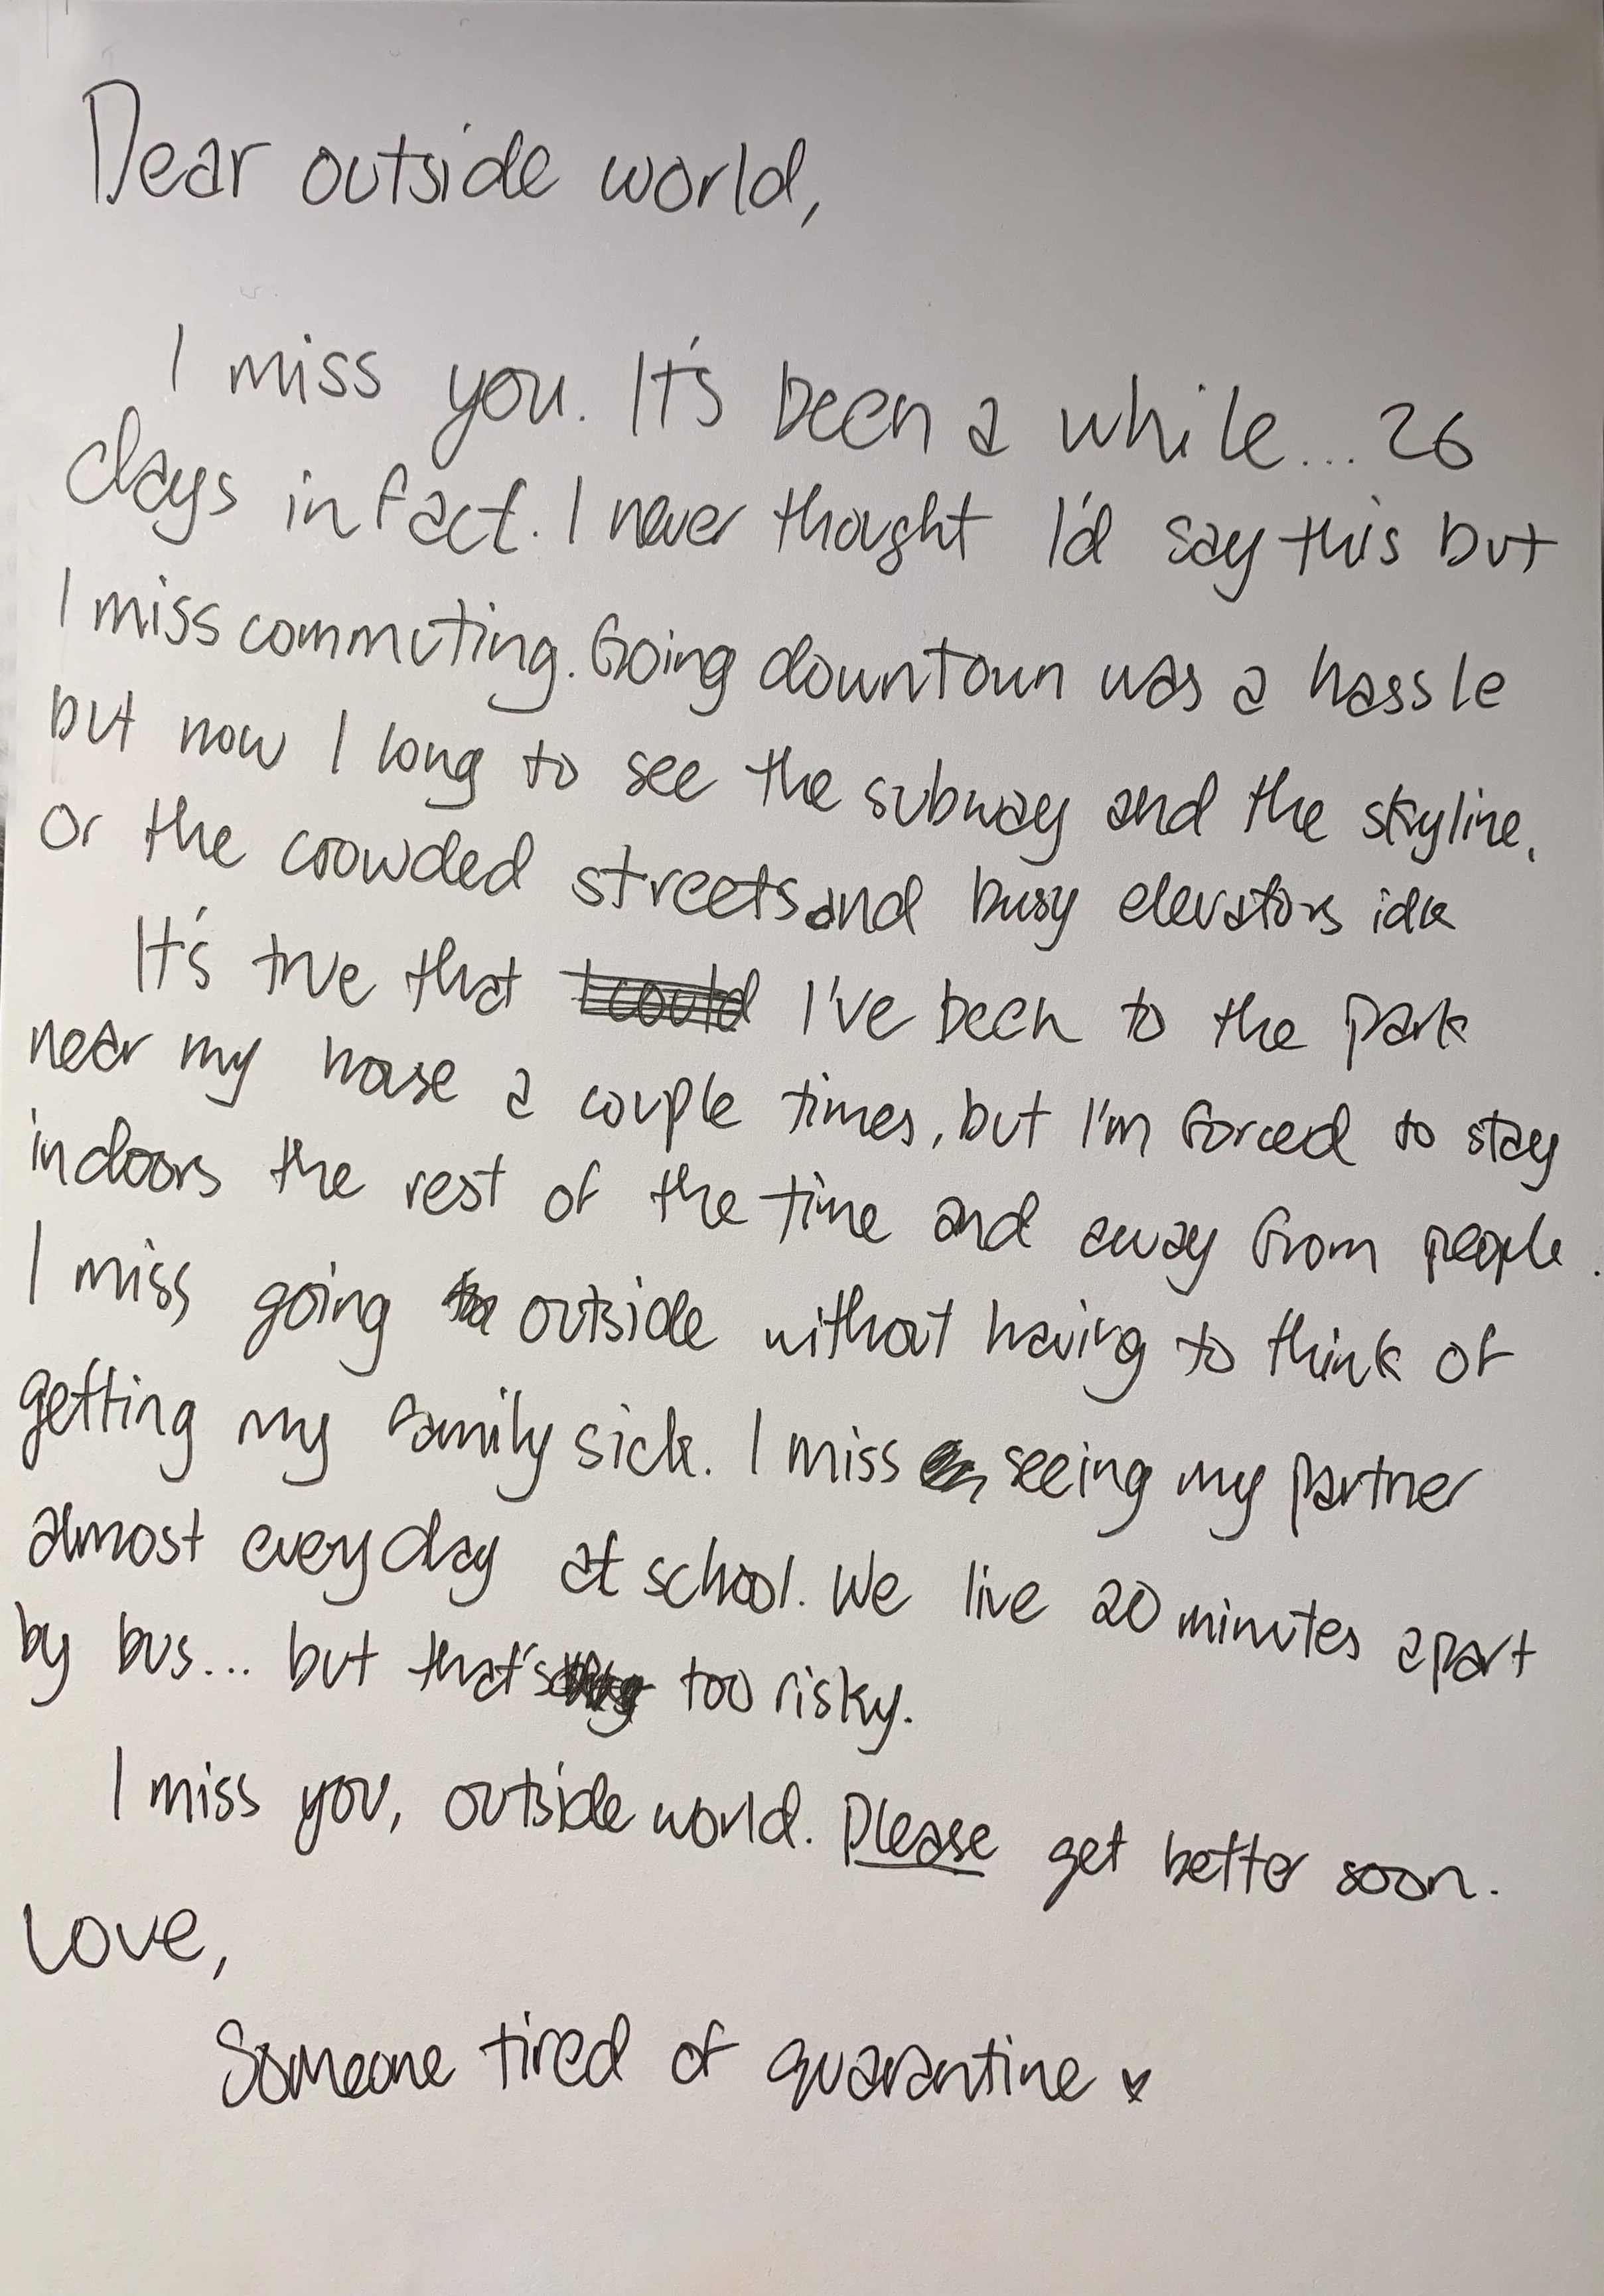 Dear outside world,
I miss you. It's been a while... 26
days in fact. I never thought I'd say this but
I miss commuting. Going downtown was a hassle
but now I long to see the subway and the skyline.
Or the crowded streets and busy elevators idk
It's true that I could I've been to the park
near my house a couple times, but I'm forced to stay
indoors the rest of the time and away from people.
I miss going outside without having to think of
getting my family sick. I miss seeing my partner
almost everyday at school. We live 20 minutes apart
by bus... but that's too risky.
I miss you, outside world. Please get better soon.
Love,
Someone tired of quarantine